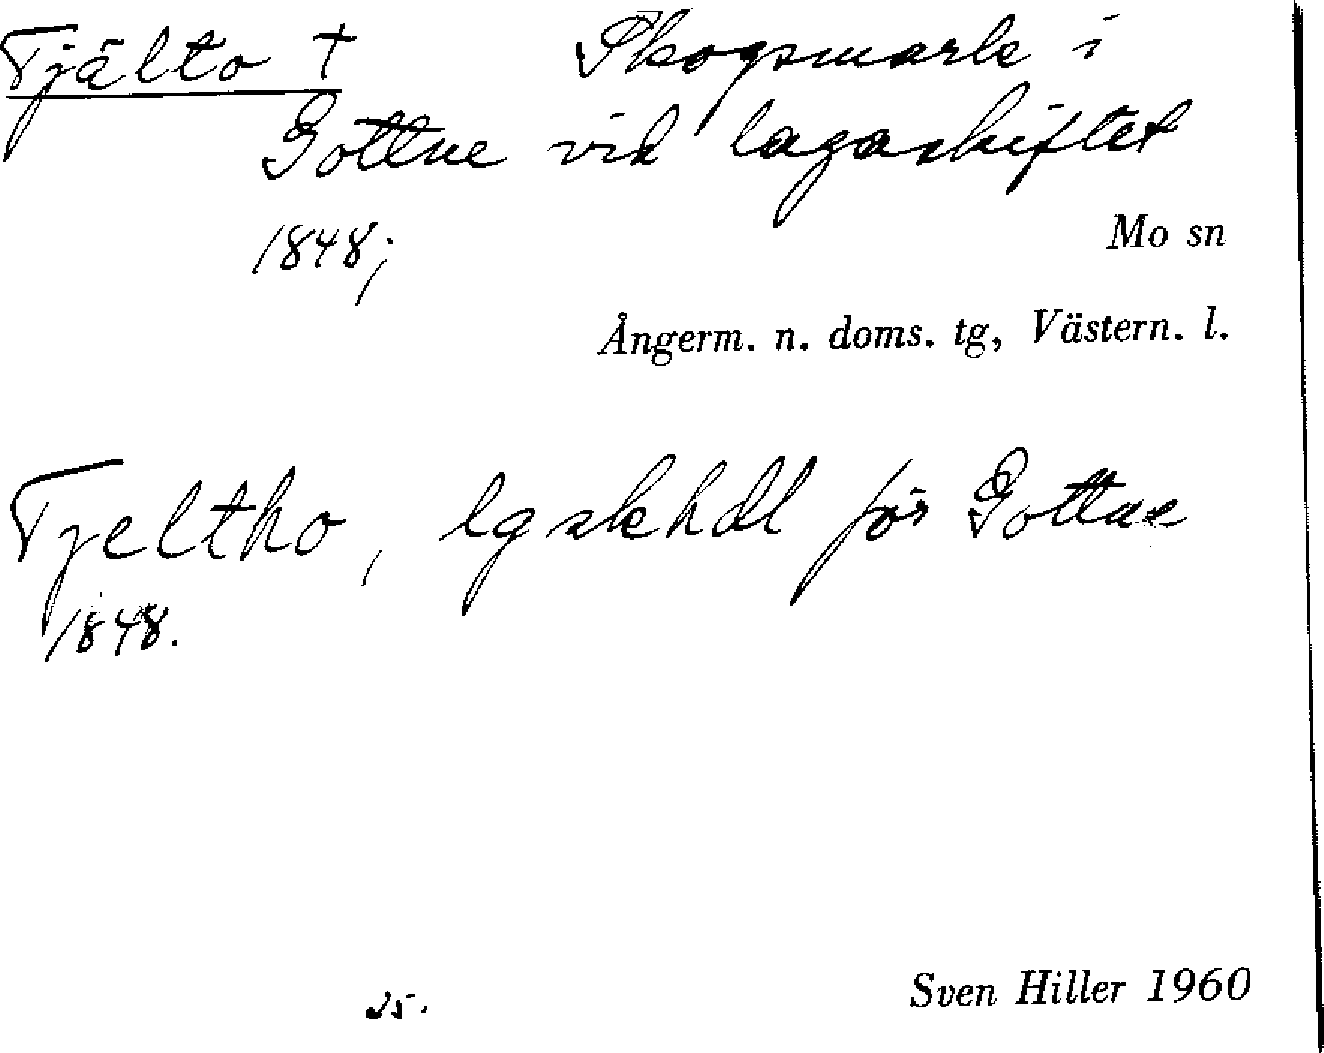 Tjälto † Skogsmark i
Gottne vid lagaskiftet
1848;
Mo sn
Ångerm. n. doms. tg, Västern. l.
Tjeltho, lgskhdl för Gottne
1848.
25.
Sven Hiller 1960